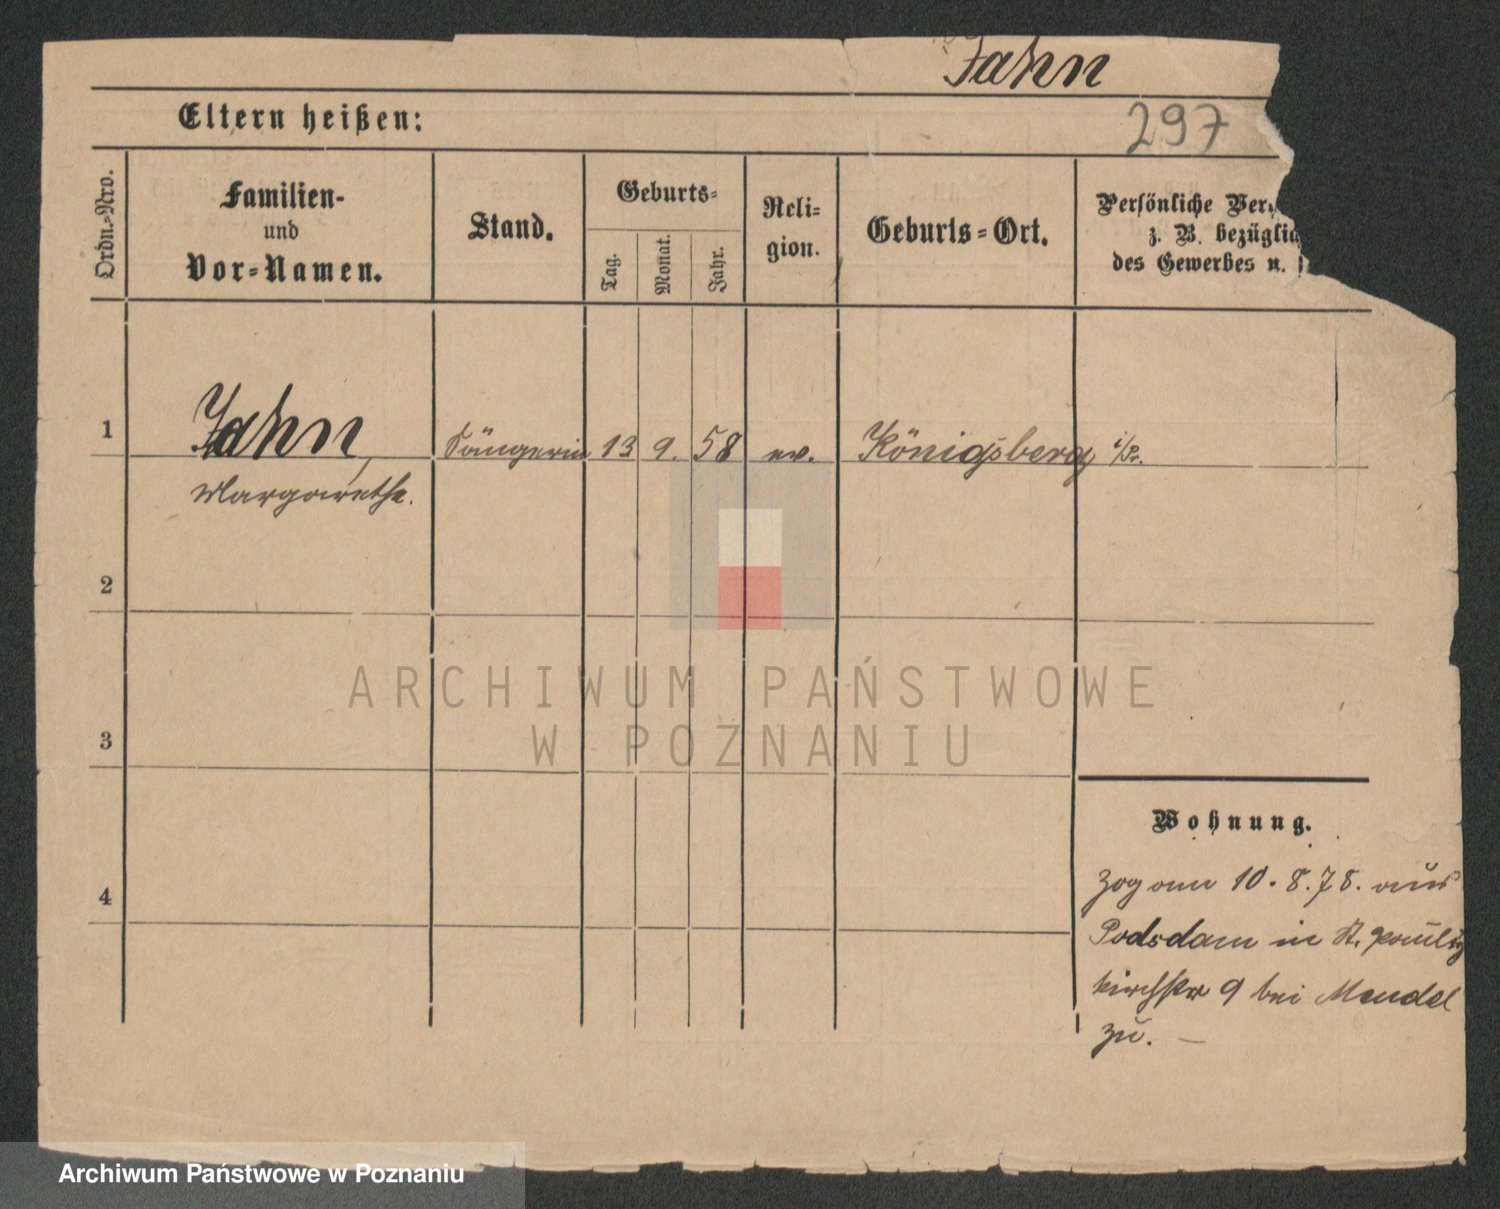 Jahn
Eltern heißen:
297
Ordn.-Nro.
Familien-
und
Vor-Namen.
Stand.
Geburts-
Tag.
Monat.
Jahr.
Reli-
gion.
Geburts-Ort.
Persönliche Ver
z. B. bezüglic
des Gewerbes u.
1
Jahn,
Margarethe.
Sängerin
13
9.
58
ev.
Königsberg i/Pr.
2
3
4
ARCHIWUM PAŃSTWOWE
W POZNANIU
Wohnung.
Zog am 10.8.78. aus
Podsdam in St. Pauli
kirchstr 9 bei Mendel
zu. —
Archiwum Państwowe w Poznaniu